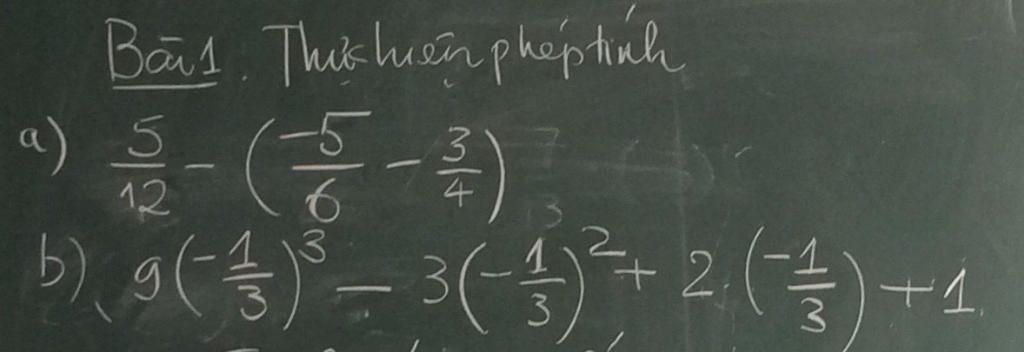 Bài 1. Thực hiện phép tính
a) 5/12 - (-5/6 - 3/4)
b) 9(-1/3)³ - 3(-1/3)² + 2.(-1/3) + 1.